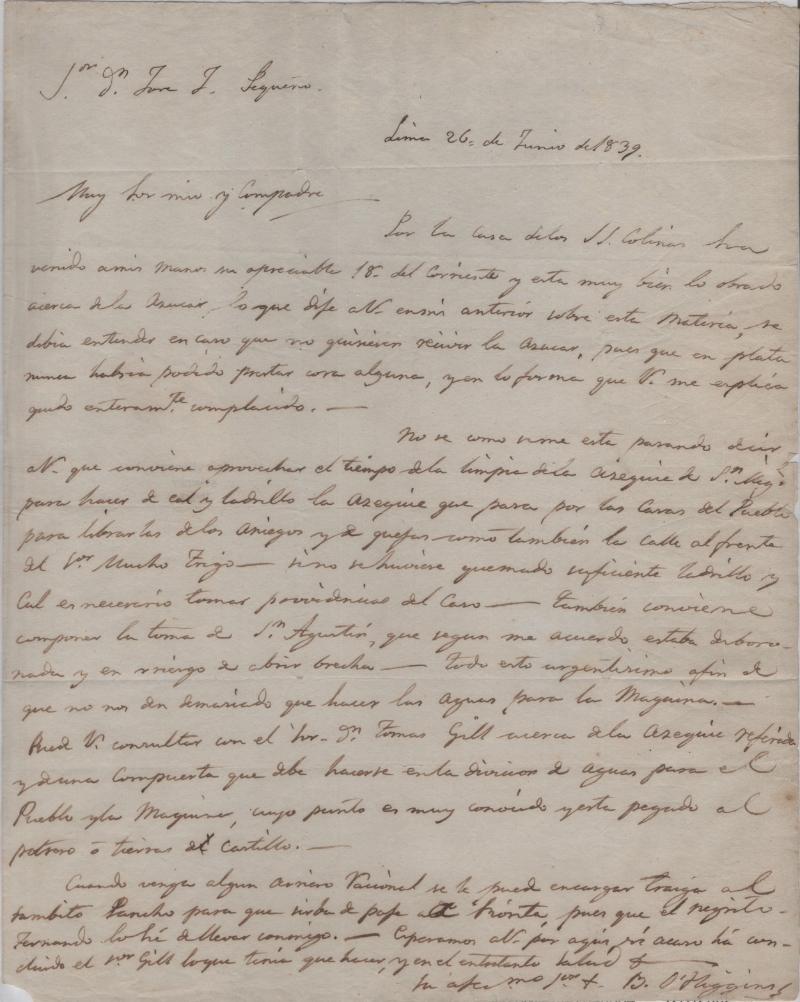 Sor. Dn. Jose J. Pequeño.
Lima 26,, de Junio de 1839.
Muy Sor mio y Compadre
Por la casa de los SS. Colinas han
venido a mis manos su apreciable 18,, del Corriente y esta muy bien lo obrado
acerca de la Azucar, lo que dije a V. en mi anterior sobre esta Materia, se
debia entender en caso que no quisiesen recivir la Azucar, pues que en plata
nunca habria podido prestar cosa alguna, y en la forma que V. me explica
quedo enteramte. complacido. —
No se como se me esta pasando decir
a V. que conviene aprovechar el tiempo de la limpia de la Azequie de Sn. Mig.
para hacer de cal y ladrillo la Azequie que pasa por las Casas del Pueblo
para librarlas de los aniegos y de quejas como también la calle al frente
del Sor Mucho Trigo — si no se huviese quemado suficiente ladrillo y
Cal es necesario tomar providencias del Caso — también conviene
componer la toma de Sn. Agustin, que segun me acuerdo estaba desboro-
nada y en riesgo de abrir brecha — todo esto urgentisimo afin de
que no nos den demasiado que hacer las aguas para la Maquina. —
Puede V. consultar con el Sor. Dn. Tomas Gill acerca de la azequie referida
y de una Compuerta que debe hacerse en la division de aguas para el
Pueblo y la Maquina, cuyo punto es muy conocido y esta pegado al
potrero ó tierras del Castillo. —
Cuando venga algun arriero Nacional se le puede encargar traiga al
sambito Pancho para que sirba de paje a pues que el negrito
Fernando lo hé de llevar conmigo. — Esperamos a V. por aqui, si acaso há con-
cluido el Sor Gill lo que tenia que hacer, y en el entretanto salud
Su afmo. B. O'Higgins